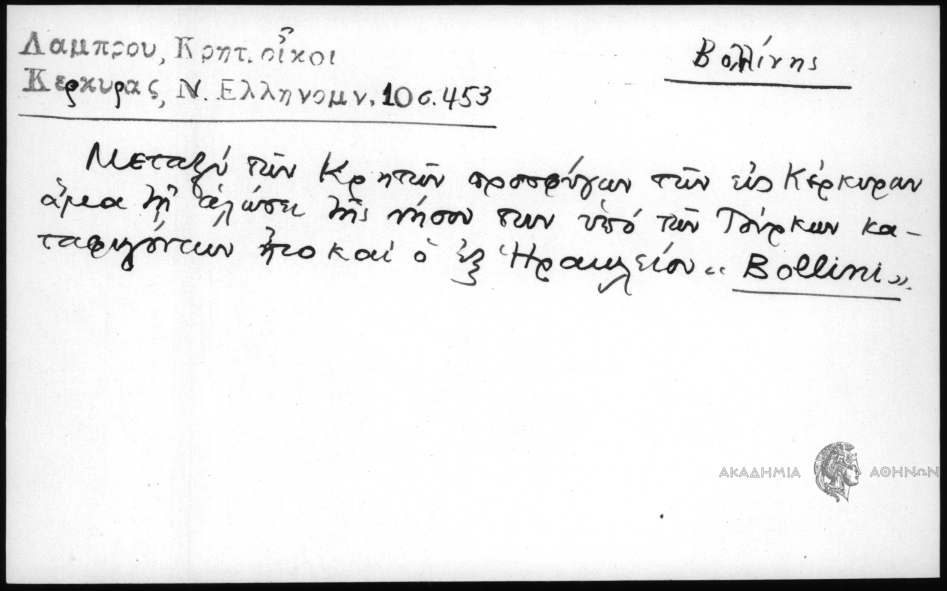 Λαμπρου, Κρητ. οἶκοι
Κερκυρας, Ν. Ελληνομν. 10 σ. 453
Βολλίνης
Μεταξύ τῶν Κρητῶν προσφύγων τῶν εἰς Κέρκυραν
ἅμα τῇ ἁλώσει τῆς νήσου των ὑπό τῶν Τούρκων κα-
ταφυγόντων ἦτο καί ὁ ἐξ Ἡρακλείου «Bollini».
ΑΚΑΔΗΜΙΑ ΑΘΗΝΩΝ